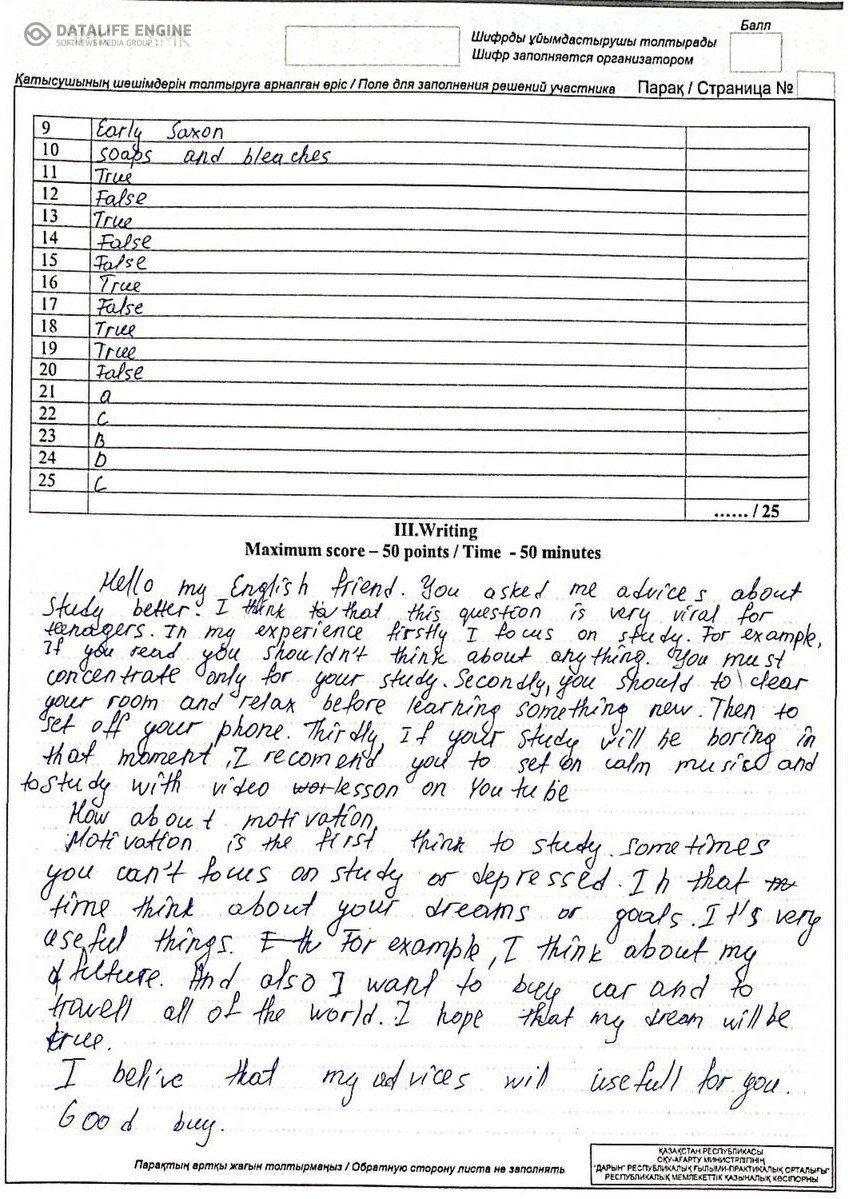 DATALIFE ENGINE
SOFTNEWS MEDIA GROUP
Балл
Шифрды ұйымдастырушы толтырады
Шифр заполняется организатором
Қатысушының шешімдерін толтыруға арналған өріс / Поле для заполнения решений участника Парақ / Страница №
9 Early Saxon
10 soaps and bleaches
11 True
12 False
13 True
14 False
15 False
16 True
17 False
18 True
19 True
20 False
21 a
22 C
23 B
24 D
25 C
...... / 25
III.Writing
Maximum score – 50 points / Time - 50 minutes
Hello my English friend. You asked me advices about
study better. I think that this question is very viral for
teenagers. In my experience firstly I focus on study. For example,
If you read you shouldn't think about anything. You must
concentrate only for your study. Secondly, you should to clear
your room and relax before learning something new. Then to
set off your phone. Thirdly If your study will be boring in
that moment, I recomend you to set on calm music and
to study with video lesson on You tube
How about motivation,
Motivation is the first think to study. Sometimes
you can't focus on study or depressed. In that
time think about your dreams or goals. It's very
useful things. For example, I think about my
future. And also I want to buy car and to
travell all of the world. I hope that my dream will be
true.
I belive that my advices will usefull for you.
Good buy.
Парақтың артқы жағын толтырмаңыз / Обратную сторону листа не заполнять
ҚАЗАҚСТАН РЕСПУБЛИКАСЫ
ОҚУ-АҒАРТУ МИНИСТРЛІГІНІҢ
"ДАРЫН" РЕСПУБЛИКАЛЫҚ ҒЫЛЫМИ-ПРАКТИКАЛЫҚ ОРТАЛЫҒЫ"
РЕСПУБЛИКАЛЫҚ МЕМЛЕКЕТТІК ҚАЗЫНАЛЫҚ КӘСІПОРНЫ